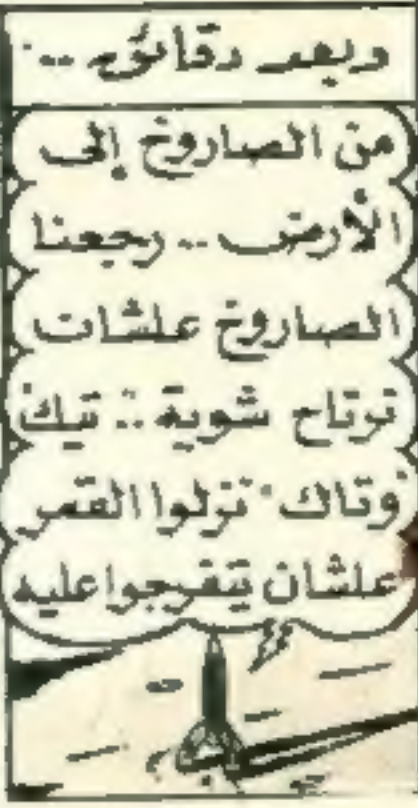 وبعد دقائق ..
من الصاروخ إلى
الأرض .. رجعنا
الصاروخ علشات
ترتاح شوية .. تيك
وتاك" نزلوا القمر
علشان يتفرجوا عليه